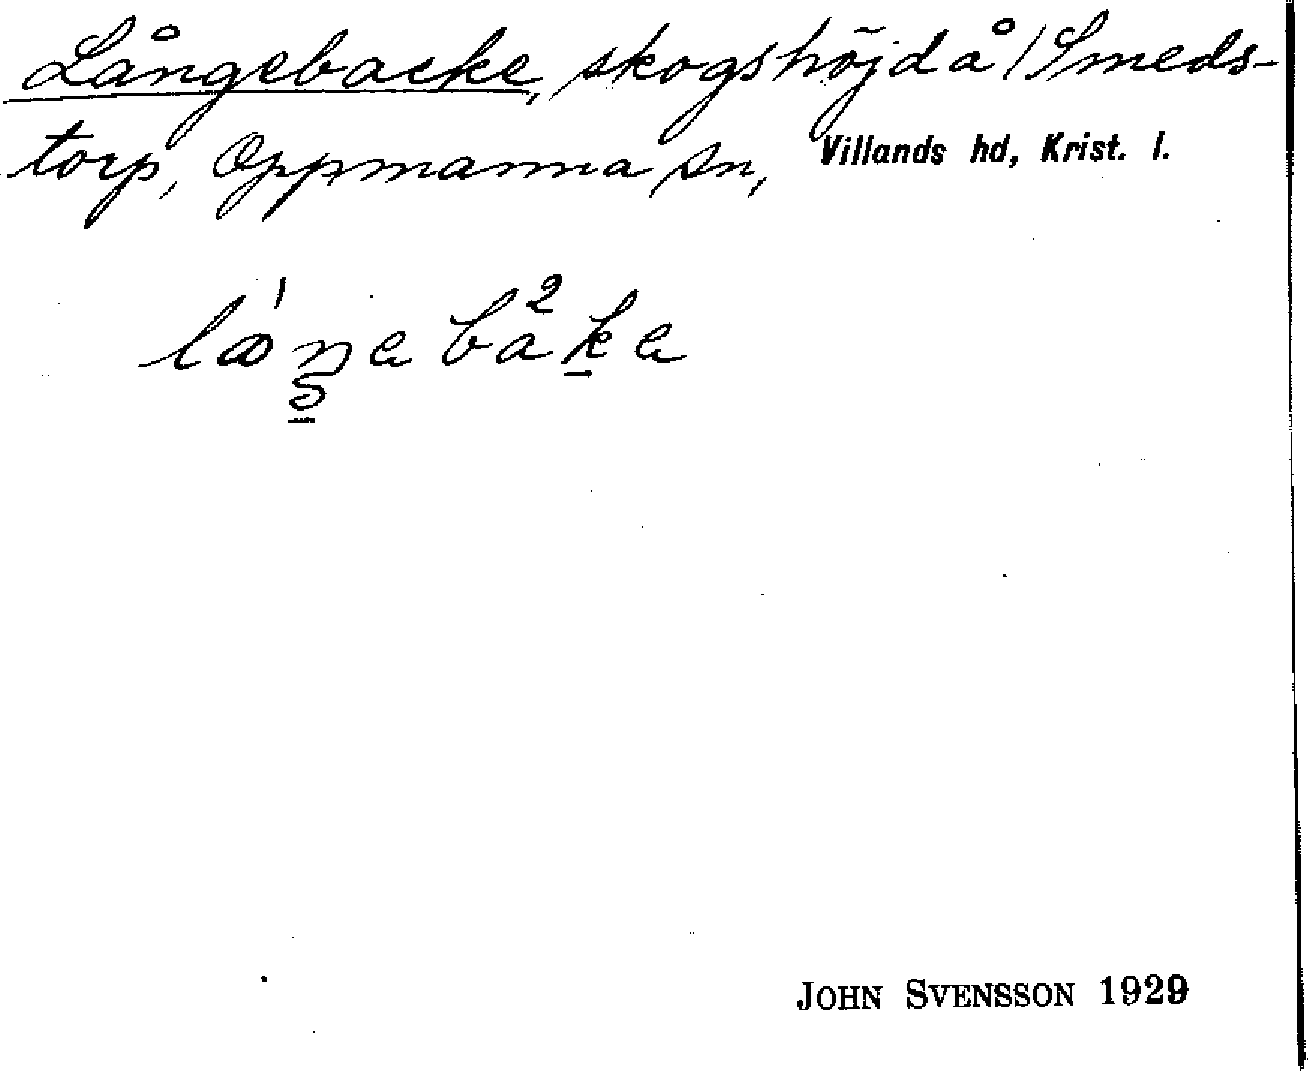 Långebacke, skogshöjd å Smeds-
torp, Oppmanna sn, Villands hd, Krist. l.
JOHN SVENSSON 1929